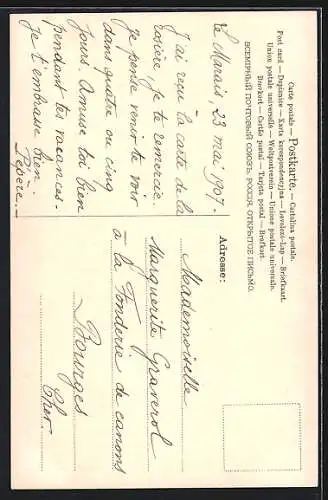 Carte postale — Postkarte. — Cartolina postale.
Post card — Dopisnice — Karta korespondencyjna — Levelezö-Lap — Briefkaart.
Union postale universelle — Weltpostverein — Unione postale universale.
Brevkort — Cartão postal — Tarjeta postal — Brefkort.
ВСЕМІРНЫЙ ПОЧТОВЫЙ СОЮЗЪ. РОССІЯ. ОТКРЫТОЕ ПИСЬМО.
Le Marais 23 mai 1907.
J'ai reçu la carte de la
rosière, je te remercie,
je pense venir te voir
dans quatre ou cinq
jours. Amuse toi bien
pendant tes vacances.
Je t'embrasse bien
Adresse:
Mademoiselle
Marguerite Graverol
à la Fonderie de canons
Bourges
Cher.